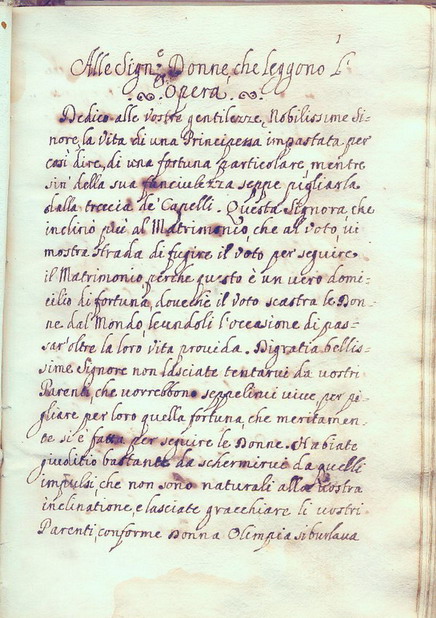 1
Alle Sign.e Donne, che leggono l'
Opera.
Dedico alle vostre gentilezze, Nobilissime Si=
nore, la vita di una Principessa impastata, per
così dire, di una fortuna particolare, mentre
sin' della sua fanciulezza seppe pigliarla
dalla treccia de' Capelli. Questa Signora, che
inclinò più al Matrimonio, che al voto, vi
mostra strada di fugire il voto per seguire
il Matrimonio, perche questo è un vero domi=
cilio di fortuna, dovechè il voto scastra le Don=
ne dal Mondo, levundoli l'occasione di pas=
sar' oltre la loro vita provida. Digratia bellis=
sime Signore non lasciate tentarvi da vostri
Parenti, che vorrebbono seppelirvi vive, per pi=
gliare per loro quella fortuna, che meritamen=
te si è fatta per seguire le Donne. Habiate
giuditio bastante da schermirvi da quelli
impulsi, che non sono naturali alla vostra
inclinatione, e lasciate gracchiare li vostri
Parenti, conforme Donna Olimpia si burlava